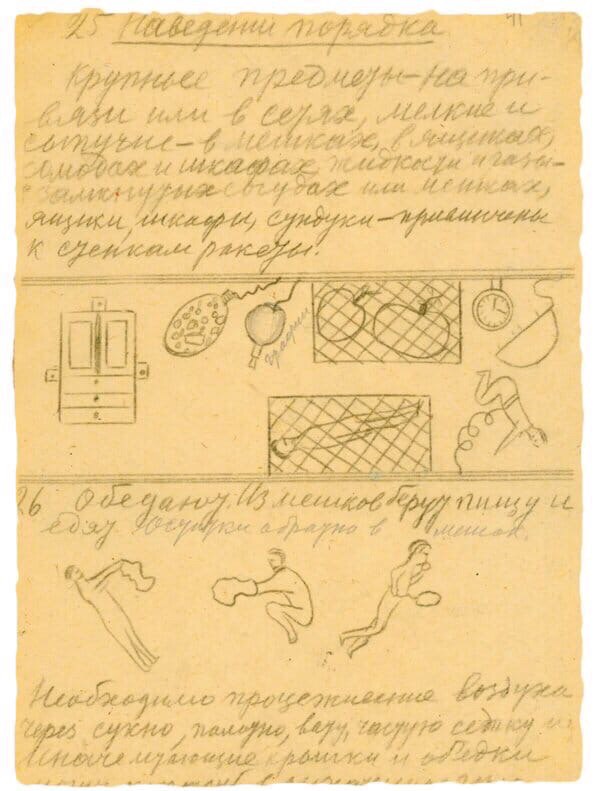 25 Наведение порядка
41
Крупные предметы – на при-
вязи или в сетях, мелкие и
сыпучие – в мешках, в ящиках,
комодах и шкафах, жидкости и газы –
в замкнутых сосудах или мешках,
ящики, шкафы, сундуки – привинчены
к стенкам ракеты.
графин
26 Обедают. Из мешков берут пищу и
едят. Остатки обратно в мешок.
Необходимо процеживание воздуха
через сукно, полотно, вату, частую сетку и
иначе мешающие крошки и объедки